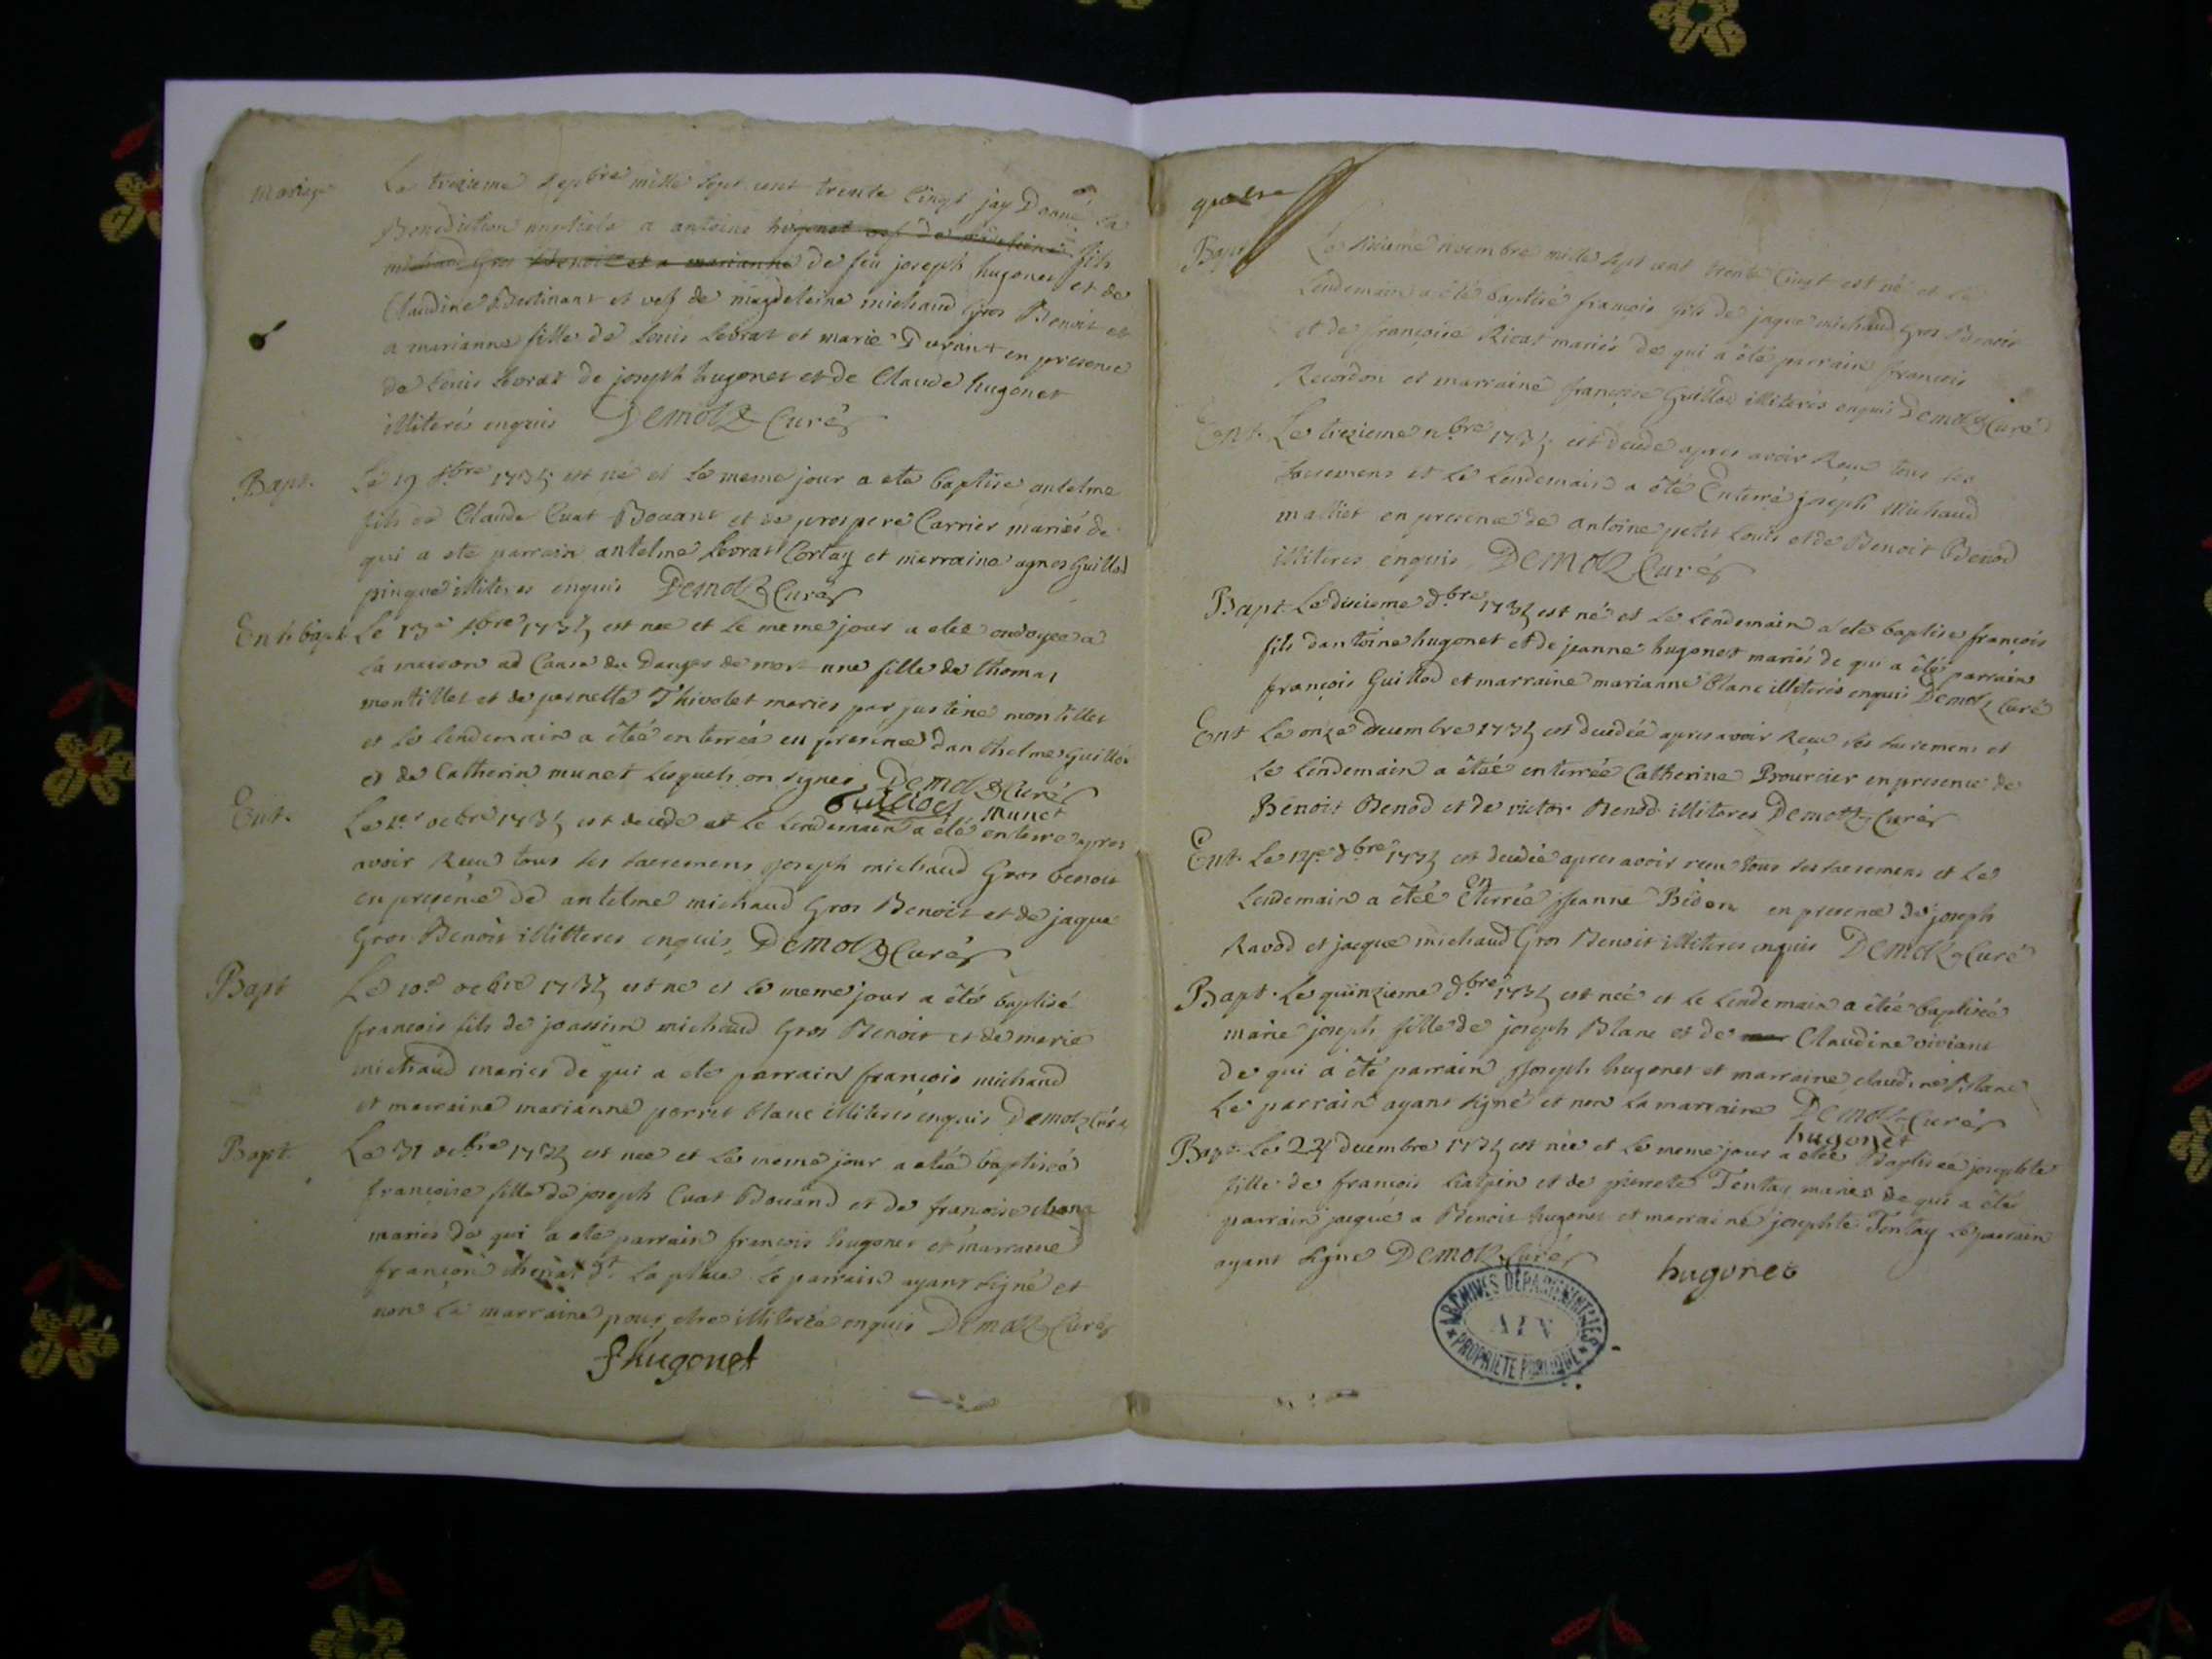 mariage
Le treizieme sepbre mille sept cent trente cinqt jay Donné la
Benediction nuptiale a antoine hugonet vef de madeleine fils
michaud Gros Benoit et a marianne de feu joseph hugonet et de
Claudine et vef de magdeleine michaud Gros Benoit et
a marianne fille de Louis Levrat et marie Durant en presence
de Louis Levrat de joseph hugonet et de Claude hugonet
illiterés enquis Demotz Curé
Bapt. Le 19 7bre 1735 est né et le meme jour a ete baptise antelme
fils de Claude Cuat Bouant et de prospere Carrier mariés de
qui a ete parrain antelme Levrat Cortay et marraine agnes Guillod
pingue illiteres enquis Demotz Curé
Ent. bapt. Le 13e 7bre 1735 est nee et le meme jour a etée ondoyée a
la maison ad Cause du Danger de mort une fille de thomas
montillet et de pernette Thivolet mariés par justine montillet
et le lendemain a étée enterrée en presence danthelme Guillod
et de Catherin munet lesquels on signer Demotz Curé
Guillod munet
Ent. Le 1er ocbre 1735 est decedé et le lendemain a été enterre apres
avoir Receu tous ses sacremens joseph michaud Gros benoit
en presence de antelme michaud Gros Benoit et de jaque
Gros Benoit illitteres enquis Demotz Curé
Bapt Le 10e ocbre 1735 est ne et le meme jour a été baptisé
francois fils de joassin michaud Gros Benoit et de marie
michaud maries de qui a ete parrain francois michaud
et marraine marianne perret blanc illiterés enquis Demotz Curé
Bapt. Le 31 ocbre 1735 est nee et le meme jour a etée baptiseé
francoise fille de joseph Cuat Bouand et de francoise
mariés de qui a ete parrain francois hugonet et marraine
la place le parrain ayant signé et
non la marraine pour etre illiterée enquis Demotz Curé
fhugonet
quatre
Bapt Le sixieme novembre mille sept cent trente Cinqt est né et le
Lendemain a été baptisé francois fils de jaque michaud Gros Benoit
et de francoise Ricat mariés de qui a été parrain francois
Recordon et marraine francoise Guillod illiterés enquis Demotz Curé
Ent. Le trezieme nbre 1735 est decede apres avoir Receu tous ses
sacremens et le Lendemain a été Enterré joseph michaud
malliet en presence de antoine petit Louis et de Benoit Benod
illiteres enquis Demotz Curé
Bapt Le dixieme dbre 1735 est né et le Lendemain a ete baptise francois
fils dantoine hugonet et de jeanne hugonet mariés de qui a été parrain
francois Guillod et marraine marianne blanc illiterés enquis Demotz Curé
Ent Le onze decembre 1735 est decedée apres avoir Receu ses sacremens et
le Lendemain a étée enterrée Catherine Brourcier en presence de
Benoit Benod et de victor Benod illiteres Demotz Curé
Ent. Le dbre 1735 est decedée apres avoir receu tous ses sacremens et le
Lendemain a étée enterrée jeanne Bidon en presence de joseph
Ravod et jacque michaud Gros Benoit illiteres enquis Demotz Curé
Bapt. Le quinzieme dbre 1735 est neé et le Lendemain a étée baptisée
marie joseph fille de joseph Blanc et de mar Claudine viviant
de qui a été parrain joseph hugonet et marraine claudine Blanc
Le parrain ayant signé et non la marraine Demotz Curé
hugonet
Bapt. Le 24 decembre 1735 est née et le meme jour a etée Baptisée josephte
fille de francois et de pierrete Tentay mariés de qui a été
parrain jacque a Benoit hugonet et marraine josephte Tentay le parrain
ayant signe Demotz Curé
hugonet
ARCHIVES DÉPARTEMENTALES
AIN
PROPRIÉTÉ PUBLIQUE